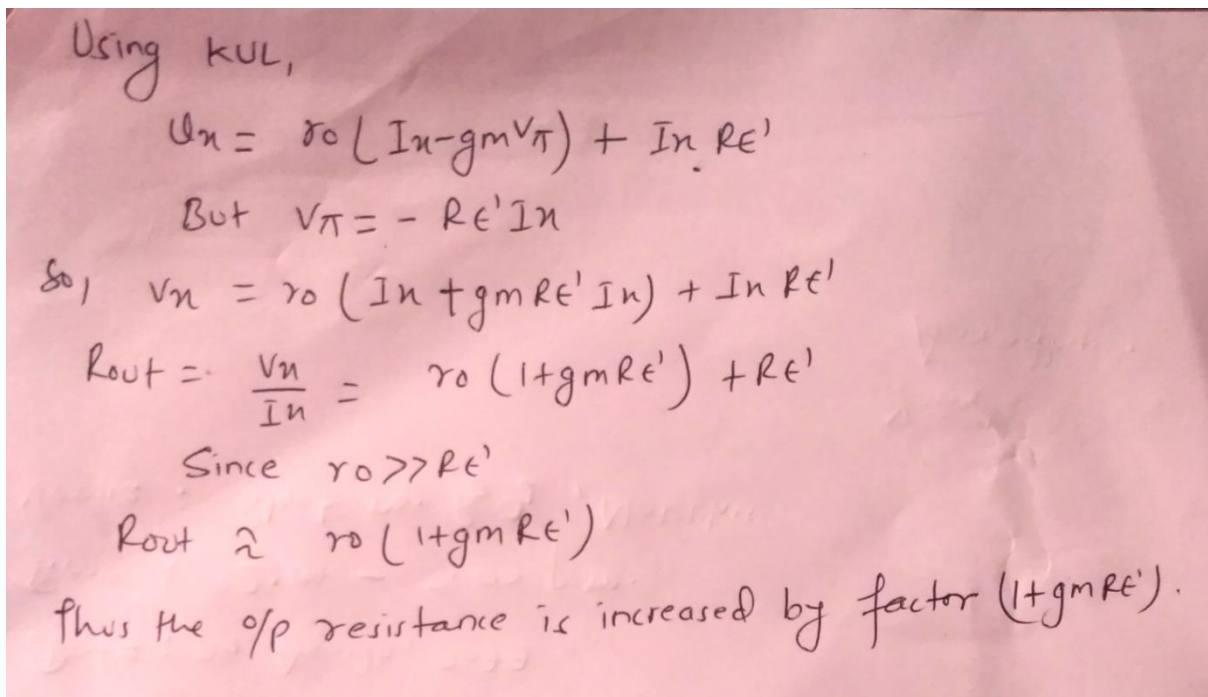 Using KVL,
Vx = ro ( Ix-gmVπ) + Ix RE'
But Vπ = - RE'Ix
So, Vx = ro ( Ix + gm RE' Ix) + Ix RE'
Rout = Vx / Ix = ro (1+gmRE') + RE'
Since ro >> RE'
Rout ≈ ro ( 1+gm RE')
Thus the o/p resistance is increased by factor (1+ gm RE').